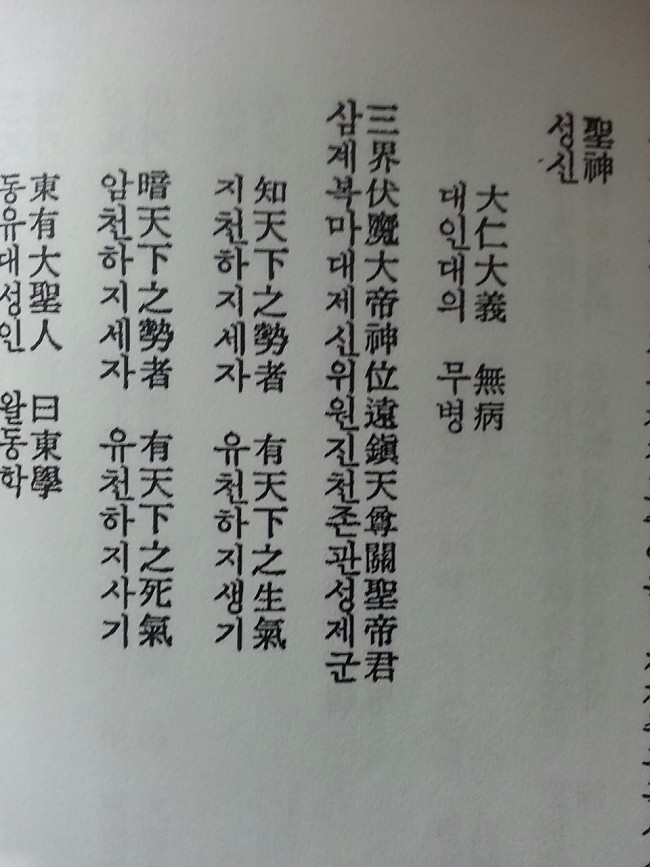 聖神
성신
大仁大義 無病
대인대의 무병
三界伏魔大帝神位遠鎭天尊關聖帝君
삼계복마대제신위원진천존관성제군
知天下之勢者 有天下之生氣
지천하지세자 유천하지생기
暗天下之勢者 有天下之死氣
암천하지세자 유천하지사기
東有大聖人 曰東學
동유대성인 왈동학